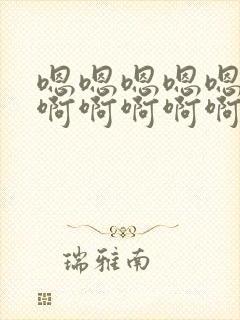 嗯嗯嗯嗯嗯
啊啊啊啊啊
瑞雅南